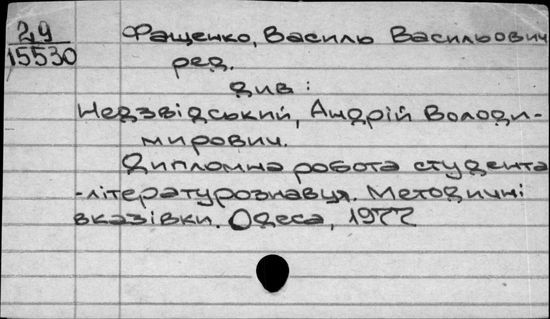 29
15530
Фащенко, Василь Васильович
ред.
див:
Недзвідський, Андрій Володи-
мирович.
Дипломна робота студента
-літературознавця. Методичні
вказівки. Одеса, 1977